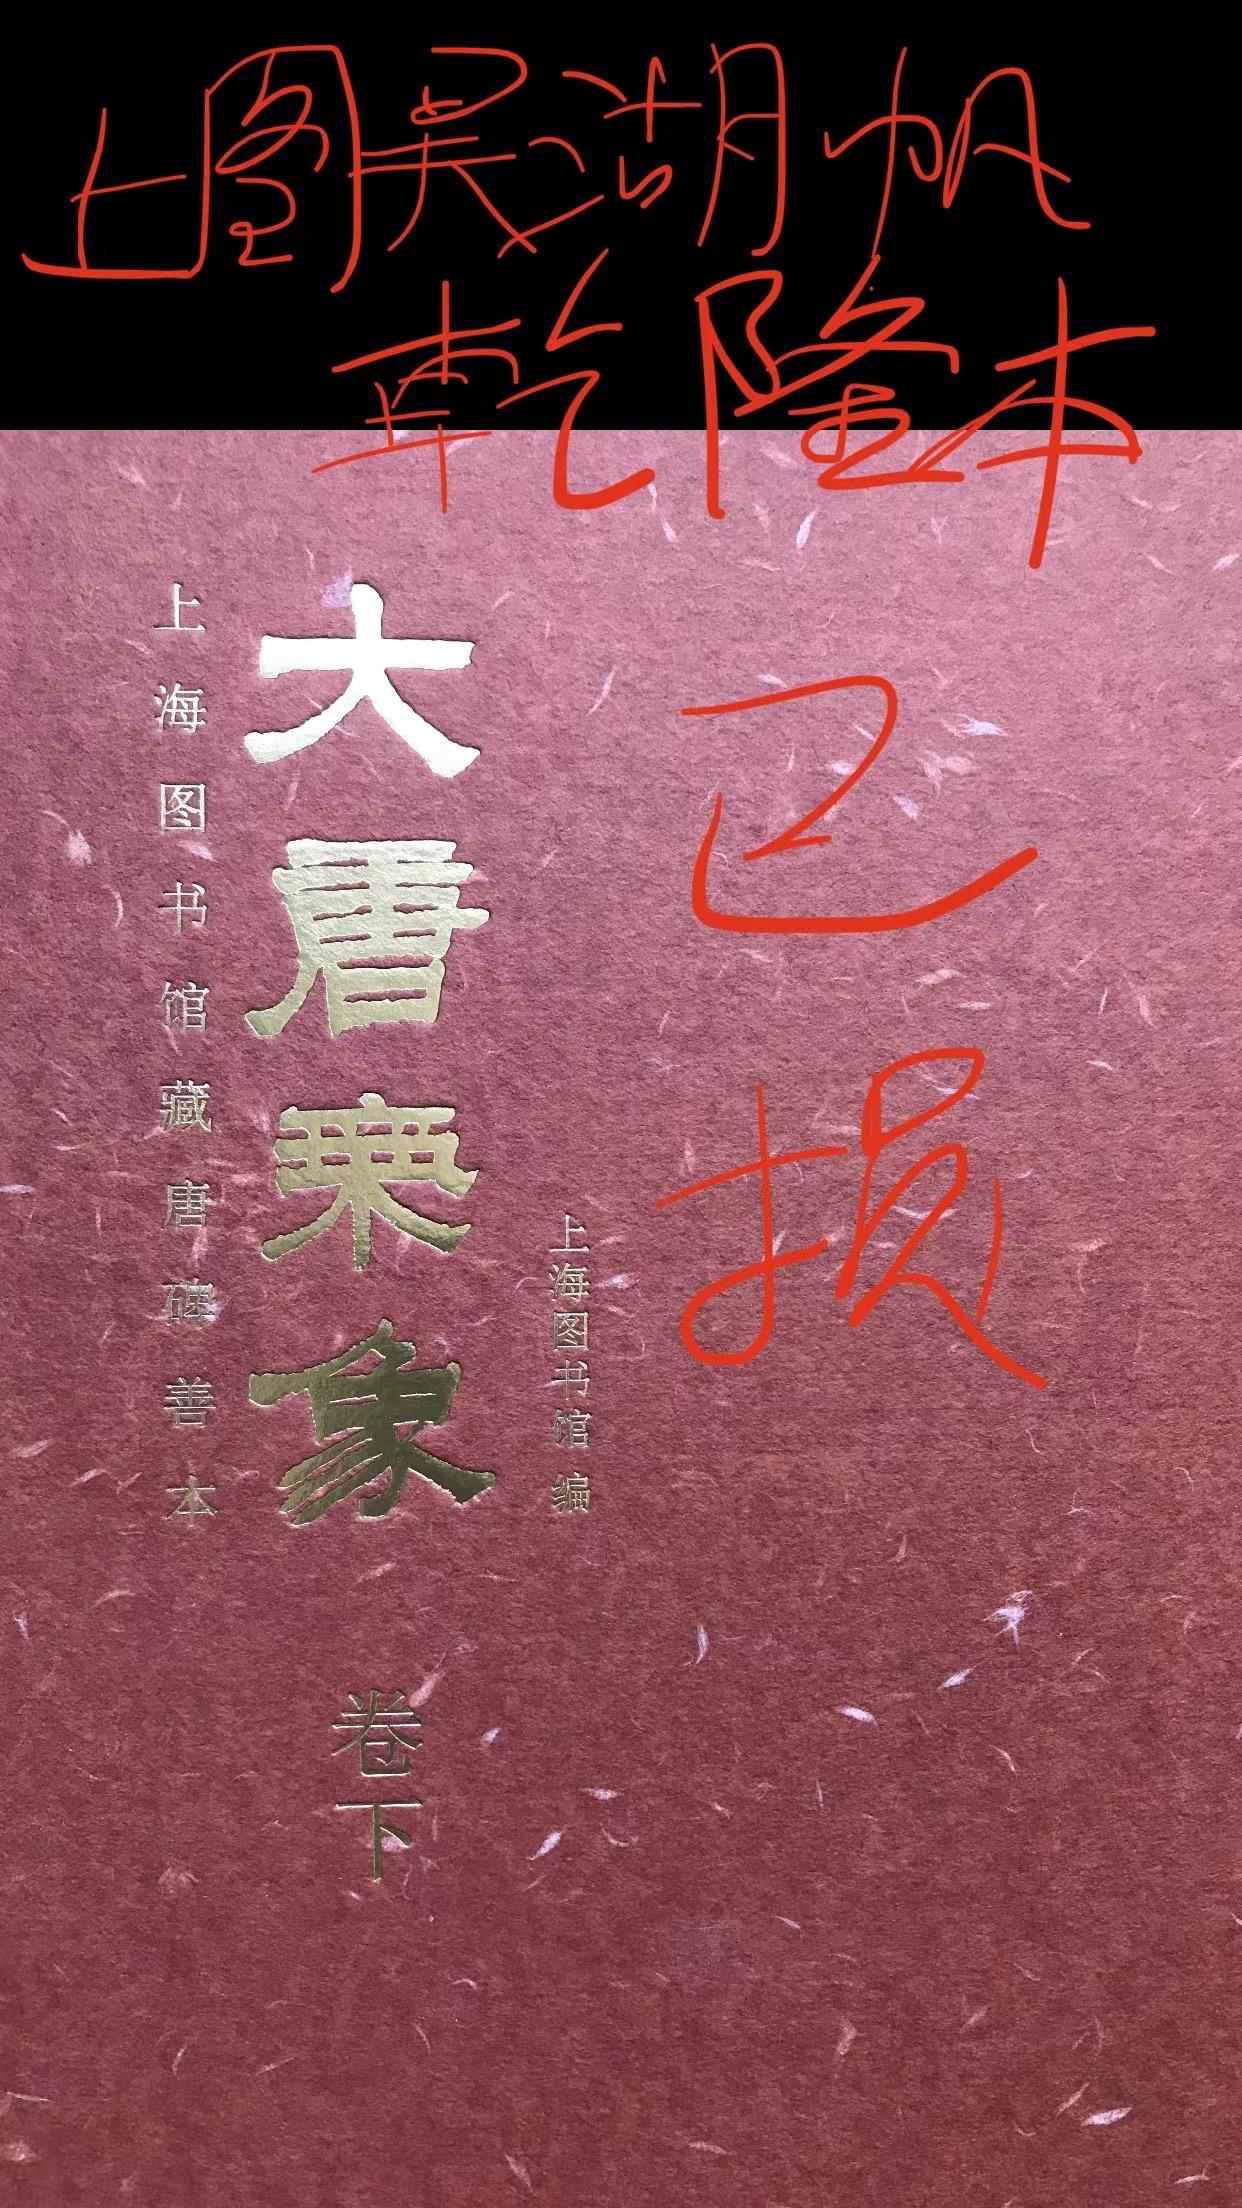 上图吴湖帆
乾隆本
已
损
上海图书馆藏唐碑善本
大唐气象
卷下
上海图书馆 编